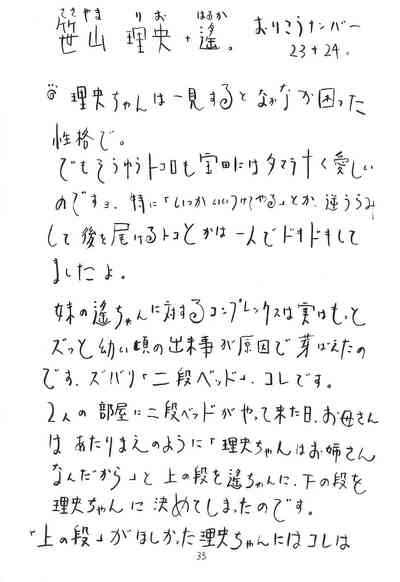 ささやま りお はるか
笹山 理央+遥。 おりこうナンバー
23+24。
理央ちゃんは一見するとなかなか困った
性格で。
でもそうゆうトコロも宝田にはタマラナく愛しい
のですヨ。特に「いつかいいつけてやる」とか、逆うらみ
して後を尾けるトコとかは一人でドキドキして
ましたよ。
妹の遥ちゃんに対するコンプレックスは実はもっと
ズっと幼い頃の出来事が原因で芽ばえたの
です。ズバリ「二段ベッド」、コレです。
2人の部屋に二段ベッドがやって来た日、お母さん
はあたりまえのように「理央ちゃんはお姉さん
なんだから」と上の段を遥ちゃんに、下の段を
理央ちゃんに決めてしまったのです。
「上の段」がほしかった理央ちゃんにはコレは
33